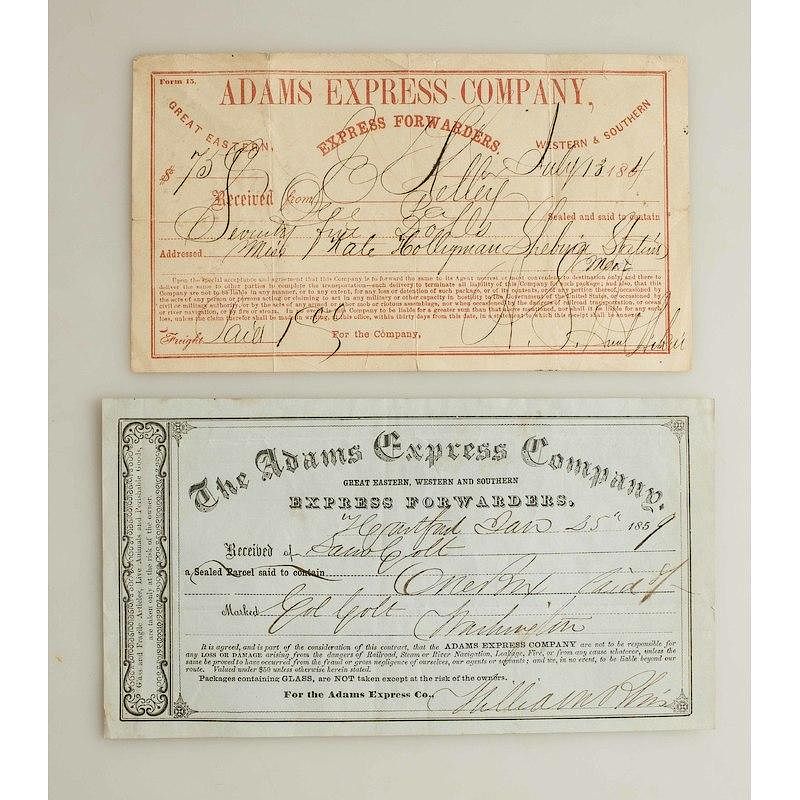 Form 15.
ADAMS EXPRESS COMPANY,
GREAT EASTERN, EXPRESS FORWARDERS WESTERN & SOUTHERN
$ 75 July 13 1864
Received from Kelley
Seventy five Sealed and said to contain
Addressed Miss Kate
Upon the special acceptance and agreement that this Company is to forward the same to its Agent nearest or most convenient to destination only, and there to
deliver the same to other parties to complete the transportation—such delivery to terminate all liability of this Company for such package; and also, that this
Company are not to be liable in any manner, or to any extent, for any loss or detention of such package, or of its contents, or of any portion thereof, occasioned by
the acts of any person or persons acting or claiming to act in any military or other capacity in hostility to the Government of the United States, or occasioned by
civil or military authority, or by the acts of any armed or other mob or riotous assemblage; nor when occasioned by the dangers of railroad transportation, or ocean
or river navigation, or by fire or steam. In no event is this Company to be liable for a greater sum than that above mentioned, nor shall it be liable for any such
loss, unless the claim therefor shall be made in writing, at this office, within thirty days from this date, in a statement to which this receipt shall be annexed.
Freight Paid 1 For the Company,
The Adams Express Company.
GREAT EASTERN, WESTERN AND SOUTHERN
EXPRESS FORWARDERS.
Hartford Jan 25" 1859
Received of Saml Colt
a Sealed Parcel said to contain One Box Paid
Marked Col Colt Washington
It is agreed, and is part of the consideration of this contract, that the ADAMS EXPRESS COMPANY are not to be responsible for
any LOSS OR DAMAGE arising from the dangers of Railroad, Steam or River Navigation, Leakage, Fire, or from any cause whatever, unless the
same be proved to have occurred from the fraud or gross negligence of ourselves, our agents or servants; and we, in no event, to be liable beyond our
route. Valued under $50 unless otherwise herein stated.
Packages containing GLASS, are NOT taken except at the risk of the owners.
For the Adams Express Co., William
Glass and Fragile Articles, Live Animals and Perishable Goods,
are taken only at the risk of the owner.